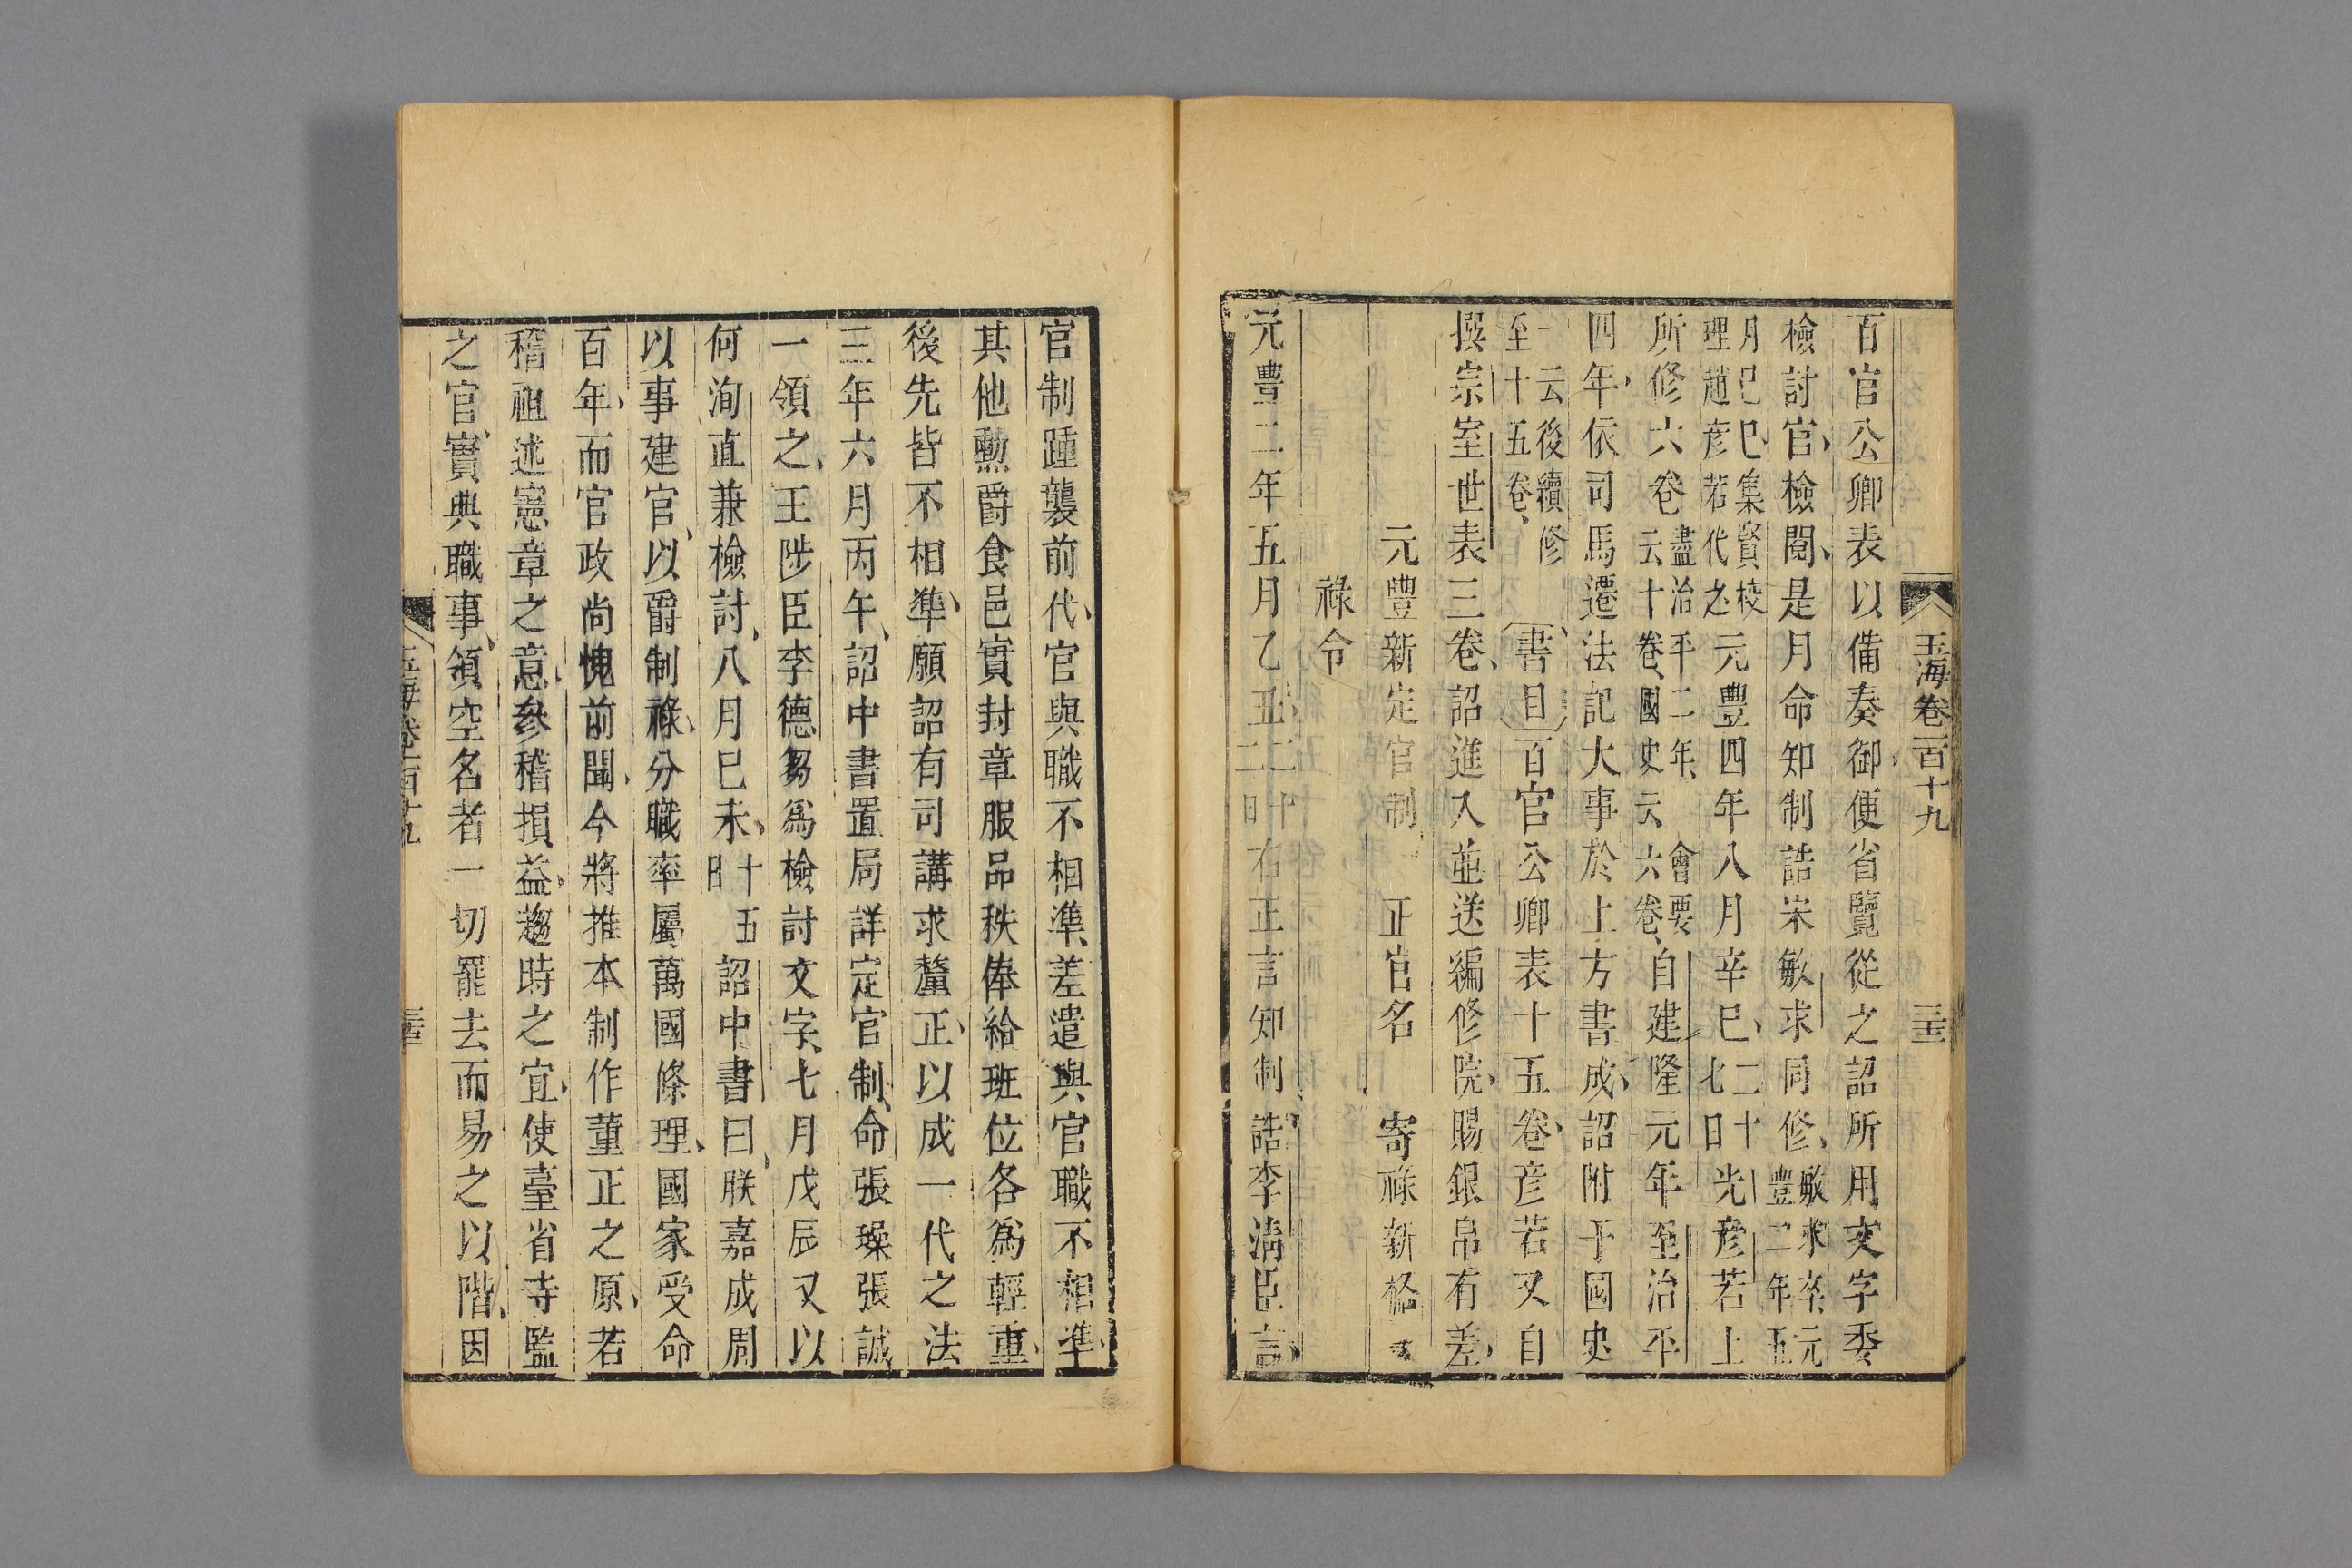 玉海卷一百十九
三十三
百官公卿表以備奏御便省覽從之詔所用文字委
檢討官檢閱是月命知制誥宋敏求同修敏求卒元豐二年五
月己巳集賢校理趙彥若代之元豐四年八月辛巳二十七日光彥若上
所修六卷盡治平二年會要云十卷國史云六卷自建隆元年至治平
四年依司馬遷法記大事於上方書成詔附于國史
一云後續修至十五卷書目百官公卿表十五卷彥若又自
撰宗室世表三卷詔進入並送編修院賜銀帛有差
元豐新定官制 正官名 寄祿新格
祿令
元豐二年五月乙丑二十二日右正言知制誥李淸臣言
官制踵襲前代官與職不相準差遣與官職不相準
其他勳爵食邑實封章服品秩俸給班位各爲輕重
後先皆不相準願詔有司講求釐正以成一代之法
三年六月丙午詔中書置局詳定官制命張璪張誠
一領之王陟臣李德芻爲檢討文字七月戊辰又以
何洵直兼檢討八月己未十五日詔中書曰朕嘉成周
以事建官以爵制祿分職率屬萬國條理國家受命
百年而官政尚愧前聞今將推本制作董正之原若
稽祖述憲章之意參稽損益趨時之宜使臺省寺監
之官實典職事領空名者一切罷去而易之以階因
玉海卷一百十九
三十三